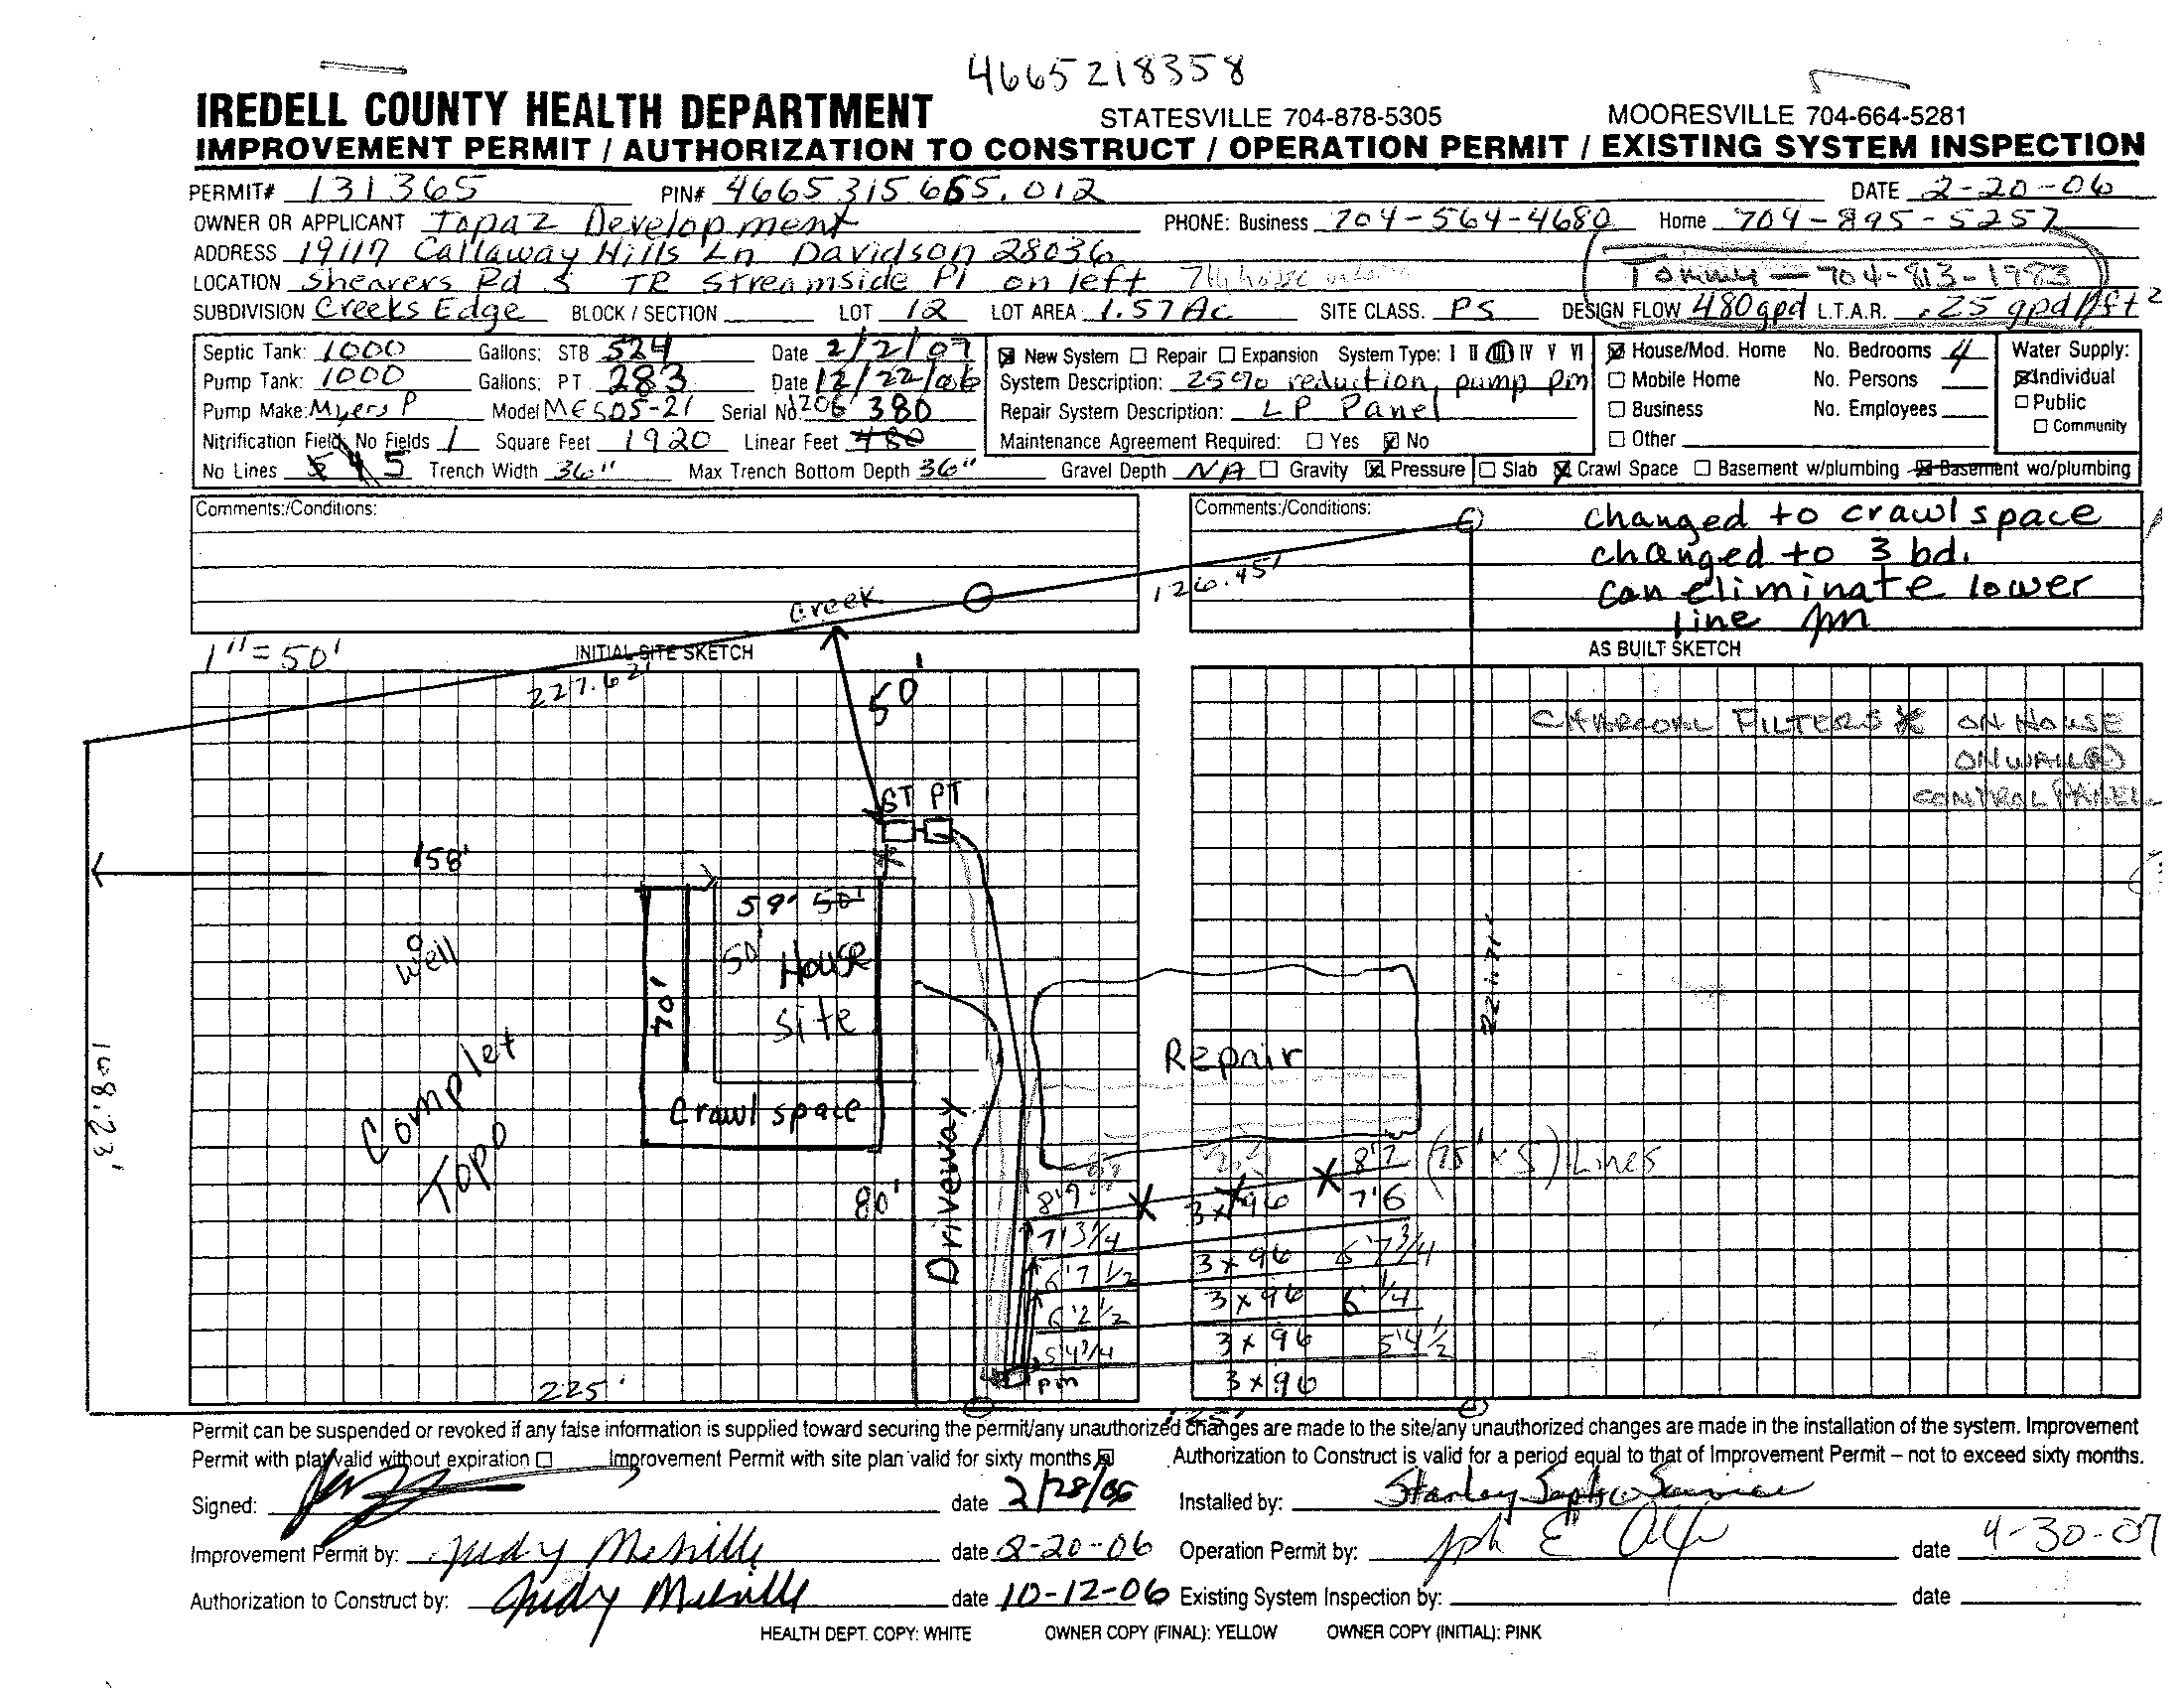 4665218358
IREDELL COUNTY HEALTH DEPARTMENT STATESVILLE 704-878-5305 MOORESVILLE 704-664-5281
IMPROVEMENT PERMIT / AUTHORIZATION TO CONSTRUCT / OPERATION PERMIT / EXISTING SYSTEM INSPECTION
PERMIT# 131365 PIN# 4665315655.012 DATE 2-20-06
OWNER OR APPLICANT Topaz Development PHONE: Business 704-564-4680 Home 704-895-5257
ADDRESS 19117 Callaway Hills Ln Davidson 28036
LOCATION Shearers Rd TR Streamside Pl on left 7th house Tommy - 704-813-1783
SUBDIVISION Creeks Edge BLOCK / SECTION LOT 12 LOT AREA 1.57 Ac SITE CLASS. PS DESIGN FLOW 480 gpd L.T.A.R. .25 gpd/ft2
Septic Tank: 1000 Gallons: STB 524 Date 2/2/07
Pump Tank: 1000 Gallons: PT 283 Date 12/22/06
Pump Make: Myers P Model ME50S-21 Serial No. 1206 380
Nitrification Field: No Fields 1 Square Feet 1920 Linear Feet 480
No Lines 5 Trench Width 36" Max Trench Bottom Depth 36" Gravel Depth NA Gravity Pressure Slab Crawl Space Basement w/plumbing Basement wo/plumbing
New System Repair Expansion System Type: I II III IV V VI
System Description: 25% reduction, pump pm
Repair System Description: LP Panel
Maintenance Agreement Required: Yes No
House/Mod. Home No. Bedrooms 4
Mobile Home No. Persons
Business No. Employees
Other
Water Supply:
Individual
Public
Community
Comments:/Conditions:
Comments:/Conditions:
changed to crawl space
changed to 3 bd.
can eliminate lower
line pm
126.45'
Creek
1"=50' INITIAL SITE SKETCH AS BUILT SKETCH
227.62'
50'
CHARCOAL FILTERS ON HOUSE
ON WALL @
CONTROL PANEL
ST PT
158'
59' 50'
50' House
site
Well
70'
221.71'
Repair
Complet
Topo
Crawl space
168.23'
80'
Driveway
8'7 (75' x 5) Lines
8'9 3x96 7'6
7'3/4
3x96 6'7 3/4
6'7 1/2
3x96 6'1/4
6'2 1/2
3x96 5'4 1/2
5'4 3/4
pm 3x96
225'
125'
Permit can be suspended or revoked if any false information is supplied toward securing the permit/any unauthorized changes are made to the site/any unauthorized changes are made in the installation of the system. Improvement
Permit with plat valid without expiration Improvement Permit with site plan valid for sixty months Authorization to Construct is valid for a period equal to that of Improvement Permit – not to exceed sixty months.
Signed: date 2/28/06 Installed by: Stanley Septic Service
Improvement Permit by: Judy Melville date 2-20-06 Operation Permit by: date 4-30-07
Authorization to Construct by: Judy Melville date 10-12-06 Existing System Inspection by: date
HEALTH DEPT. COPY: WHITE OWNER COPY (FINAL): YELLOW OWNER COPY (INITIAL): PINK